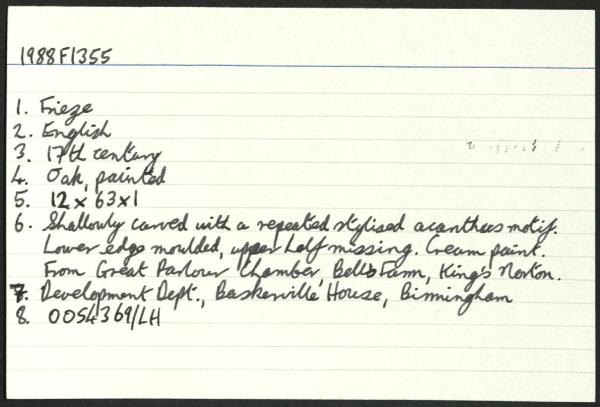 1988F1355
1. Frieze
2. English
3. 17th century
4. Oak, painted
5. 12 x 63 x 1
6. Shallowly carved with a repeated stylised acanthus motif.
Lower edge moulded, upper half missing. Cream paint.
From Great Parlour Chamber, Bells Farm, King's Norton.
7. Development Dept., Baskerville House, Birmingham
8. 0054369/LH